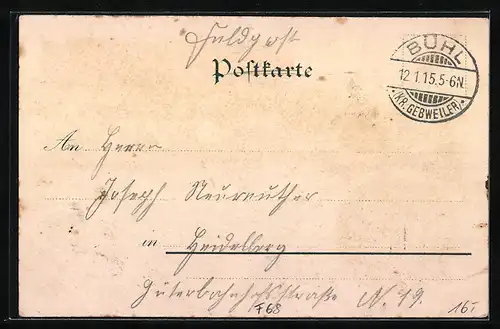 Feldpost
Postkarte
BÜHL
12.1.15.5-6N.
*(KR. GEBWEILER)*
An Herrn
Joseph Neureuther
in Heidelberg
Güterbahnhofsstraße N. 19.
F68
16.